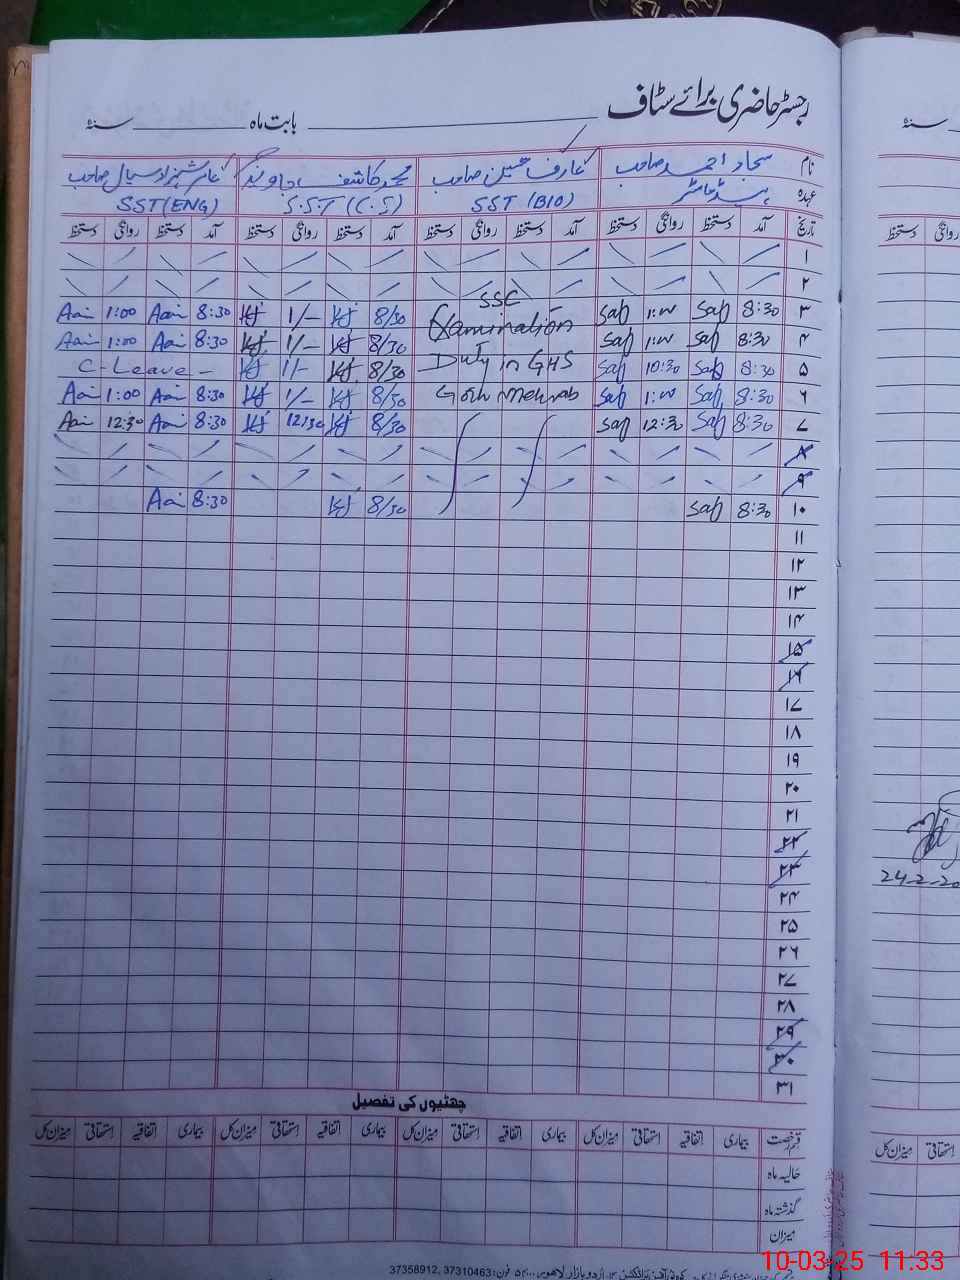 رجسٹر حاضری برائے سٹاف
بابت ماہ ـــــــــ سنۂ ـــــــــ
نام سجاد احمد صاحب عارف حسین صاحب محمد کاشف جاوید عامر شہزاد سیال صاحب
عہدہ ہیڈ ماسٹر SST (BIO) S.S.T (C.S) SST (ENG)
تاریخ آمد دستخط روانگی دستخط آمد دستخط روانگی دستخط آمد دستخط روانگی دستخط آمد دستخط روانگی دستخط
دستخط روانگی
۱
۲
۳ 8:30 Saj 1:00 Saj SSC Examination 8/30 KJ 1/- KJ 8:30 Aai 1:00 Aai
۴ 8:30 Saj 1:00 Saj 8/30 KJ 1/- KJ 8:30 Aai 1:00 Aai
۵ 8:30 Saj 10:30 Saj Duty in GHS 8/30 KJ 1/- KJ C-Leave -
۶ 8:30 Saj 1:00 Saj 8/30 KJ 1/- KJ 8:30 Aai 1:00 Aai
۷ 8:30 Saj 12:30 Saj 8/30 KJ 12:30 KJ 8:30 Aai 12:30 Aai
۸
۹
۱۰ 8:30 Saj 8/30 KJ 8:30 Aai
۱۱
۱۲
۱۳
۱۴
۱۵
۱۶
۱۷
۱۸
۱۹
۲۰
۲۱
۲۲
۲۳
۲۴
۲۵
۲۶
۲۷
۲۸
۲۹
۳۰
۳۱
24-2-20
چھٹیوں کی تفصیل
قسم رخصت بیماری اتفاقیہ استحقاقی میزان کل بیماری اتفاقیہ استحقاقی میزان کل بیماری اتفاقیہ استحقاقی میزان کل بیماری اتفاقیہ استحقاقی میزان کل
استحقاقی میزان کل
حالیہ ماہ
گذشتہ ماہ
میزان
اردو بازار لاہور فون: 37358912, 37310463
10-03-25 11:33